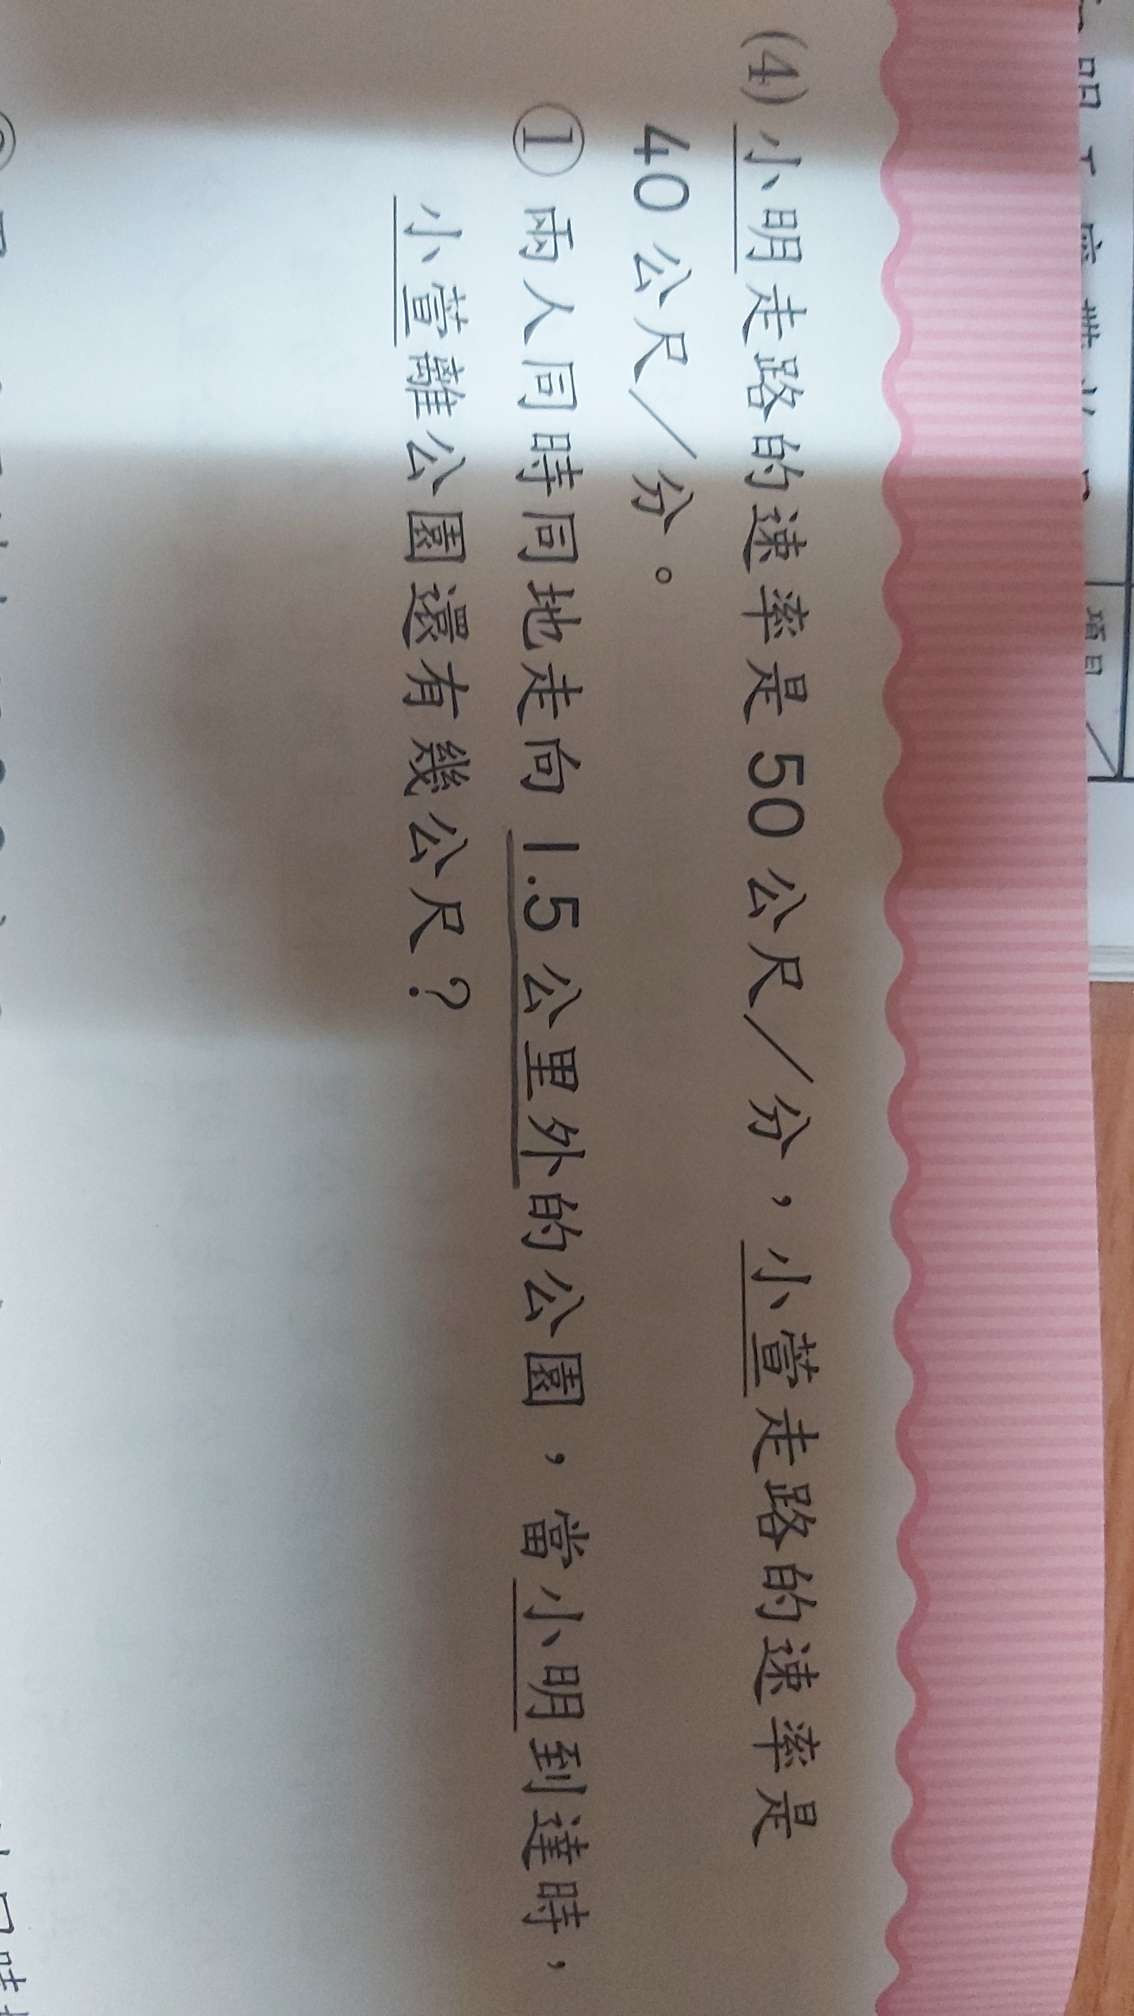 (4) 小明走路的速率是 50 公尺／分，小萱走路的速率是
40 公尺／分。
① 兩人同時同地走向 1.5 公里外的公園，當小明到達時，
小萱離公園還有幾公尺？
項目